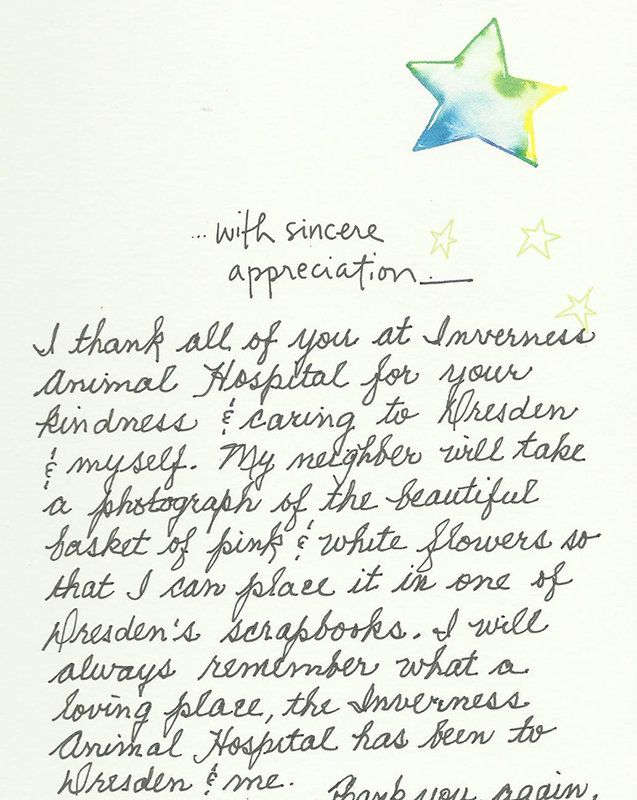 ...with sincere
appreciation.
I thank all of you at Inverness
Animal Hospital for your
kindness & caring to Dresden
& myself. My neighber will take
a photograph of the beautiful
basket of pink & white flowers so
that I can place it in one of
Dresden's scrapbooks. I will
always remember what a
loving place, the Inverness
Animal Hospital has been to
Dresden & me. Thank you again.